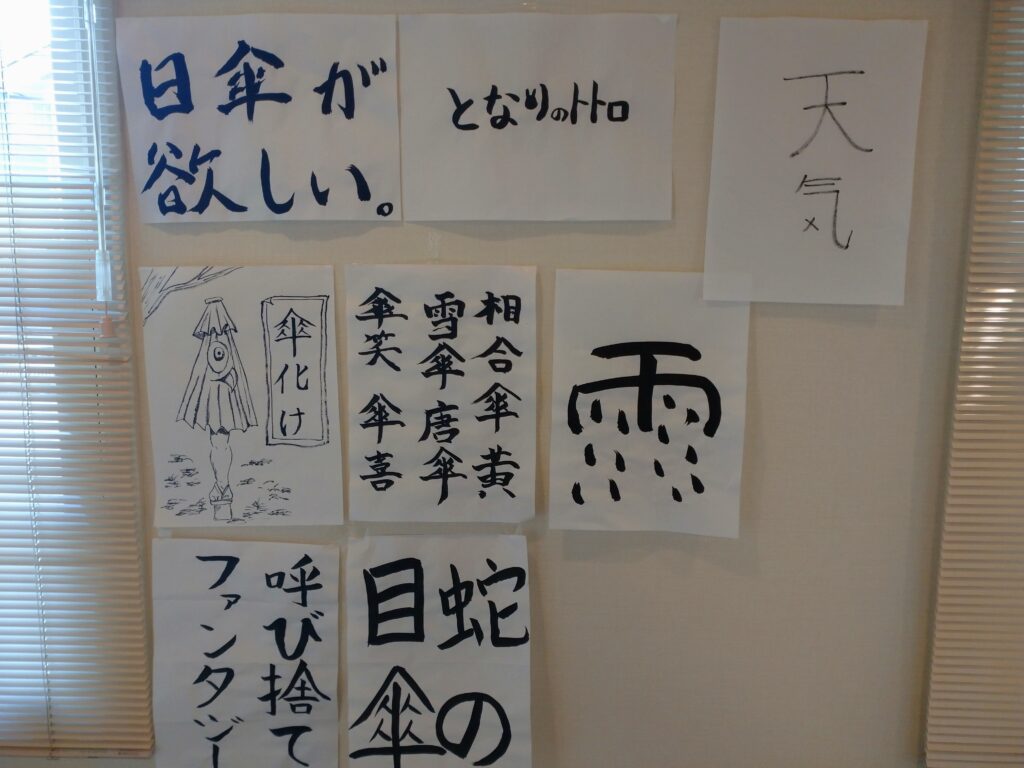 日傘が
欲しい。
となりのトトロ
天気
傘化け
相合傘 黄
雪傘唐傘
傘笑 傘喜
雨
呼び捨て
ファンタジー
蛇の
目傘